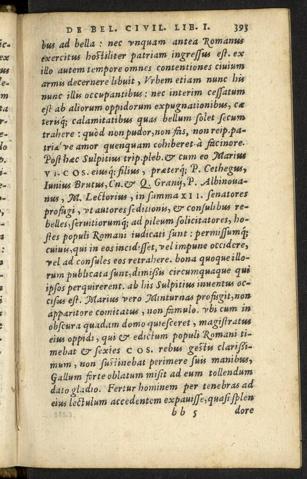 DE BEL. CIVIL. LIB. I. 393
bus ad bella: nec vnquam antea Romanus
exercitus hostiliter patriam ingressus est. ex
illo autem tempore omnes contentiones ciuium
armis decernere libuit, Vrbem etiam nunc his
nunc illis occupantibus: nec interim cessatum
est ab aliorum oppidorum expugnationibus, cæ
terisq; calamitatibus quas bellum solet secum
trahere: quòd non pudor, non fas, non reip. pa-
triæ ve amor quenquam cohiberet à facinore.
Post hæc Sulpitius trip. pleb. & cum eo Marius
VI. COS. eiusq; filius, præterq; P. Cethegus,
Iunius Brutus, Cn. & Q. Granij, P. Albinoua-
nus, M. Lectorius, in summa XII. senatores
profugi, vt autores seditionis, & consulibus re-
belles, seruitiorumq; ad pileum solicitatores, ho-
stes populi Romani iudicati sunt: permissumq;
cuiuis, qui in eos incidisset, vel impune occidere,
vel ad consules eos retrahere. bona quoque illo-
rum publicata sunt, dimissis circumquaque qui
ipsos perquirerent. ab his Sulpitius inuentus oc-
cisus est. Marius vero Minturnas profugit, non
apparitore comitatus, non famulo. vbi cum in
obscura quadam domo quiesceret, magistratus
eius oppidi, qui & edictum populi Romani ti-
mebat & sexies COS. rebus gestis clarissi-
mum, non sustinebat perimere suis manibus,
Gallum forte oblatum misit ad eum tollendum
dato gladio. Fertur hominem per tenebras ad
eius lectulum accedentem expauisse, quasi splen
bb 5 dore